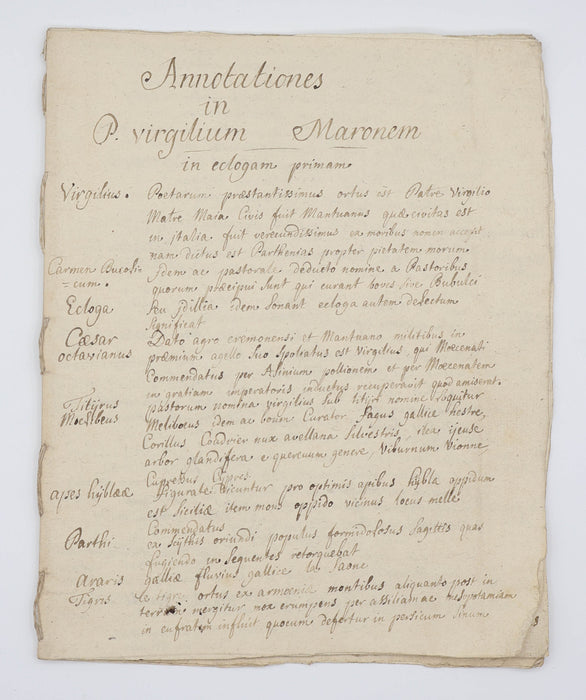 Annotationes
in
P. virgilium Maronem
in eclogam primam
Virgilius. Poetarum præstantissimus ortus est Patre Virgilio
Matre Maia Civis fuit Mantuanus quæ civitas est
in jtalia fuit verecundissimus ex moribus nomen accepit
nam dictus est Parthenias propter pietatem morum
Carmen Bucoli= Jdem ac pastorale deducto nomine a Pastoribus
cum. quorum præcipui sunt qui curant boves sive Bubulci
Ecloga seu jdillia idem sonant ecloga autem delectum
significat
Cæsar Dato agro cremonensi et Mantuano militibus in
octavianus præmium agello suo spoliatus est Virgilius, qui Mœcenati
Commendatus per Asinium pollionem et per Mœcenatem
in gratiam imperatoris inductus recuperavit quod amiserat.
Titijrus pastorum nomina virgilius sub titijri nomine loquitur
Mœlibeus Melibœus idem ac boum Curator fagus gallice hestre,
Corillus Coudrier nux avellana silvestris, ilex ijeuse
arbor glandifera e quercuum genere, viburnum Vionne
Cupressus Cypres.
apes hijblææ figurate dicuntur pro optimis apibus hijbla oppidum
est Siciliæ item mons oppido vicinus locus melle
Commendatus
Parthi ex scijthis oriundi populus formidolosus sagittis quas
fugiendo in sequentes retorquebat
Araris galliæ fluvius gallice la Saone
Tigris le tigre ortus ex armeniæ montibus aliquanto post in
terram mergitur mox erumpens per assiliam ac mesopotamiam
in eufratem influit quocum defertur in persicum sinum